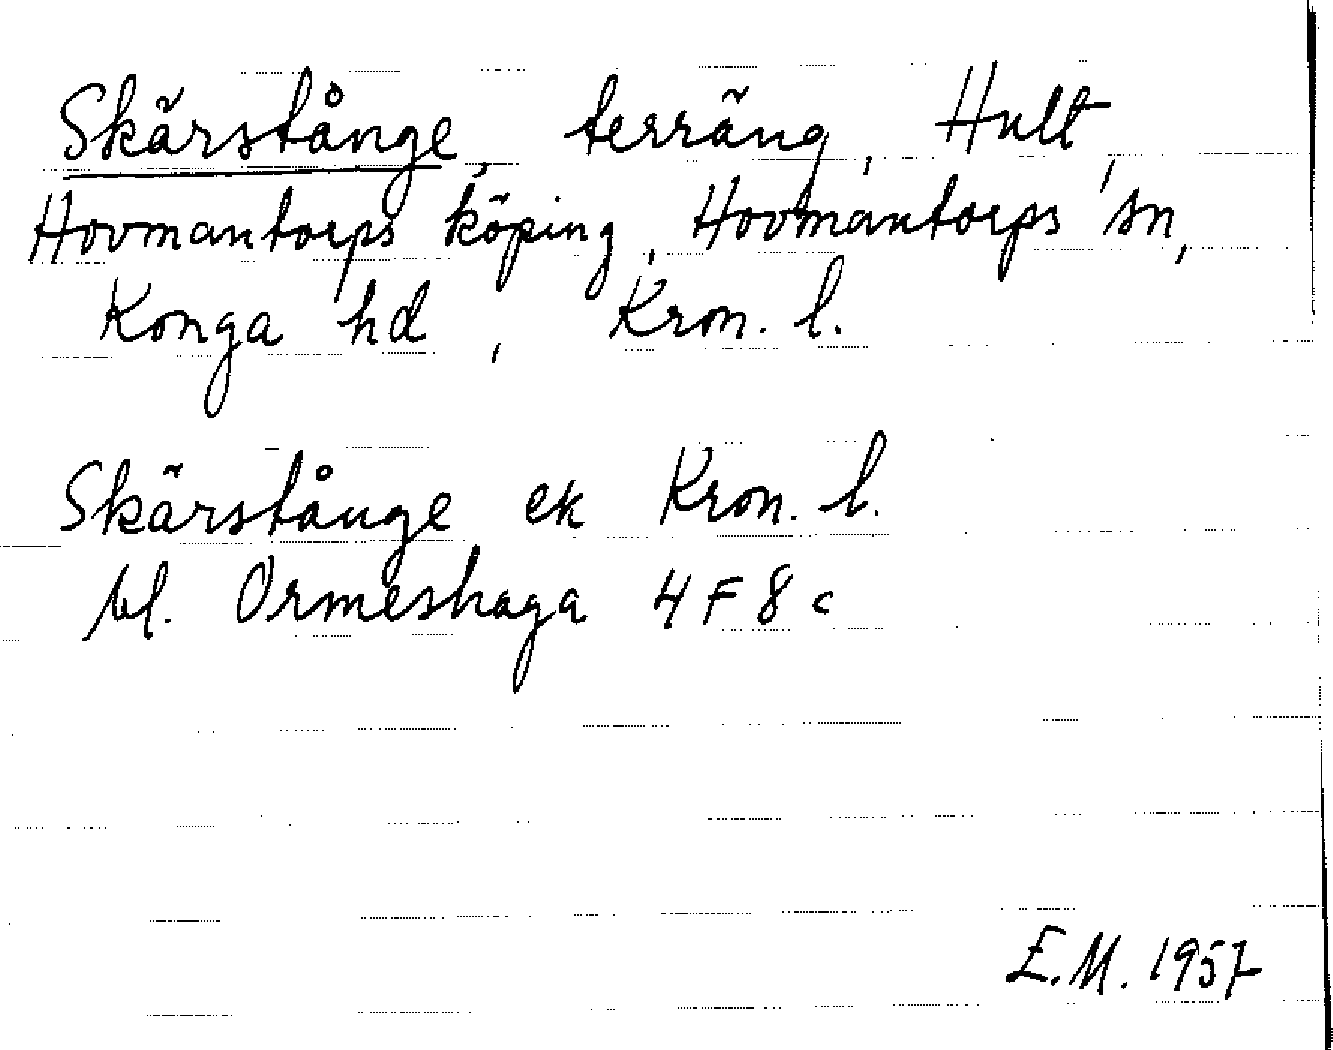 Skärstånge, terräng, Hult,
Hovmantorps köping, Hovmantorps sn,
Konga hd, Kron. l.
Skärstånge ek Kron. l.
bl. Ormeshaga 4 F 8 c
E.M. 1957